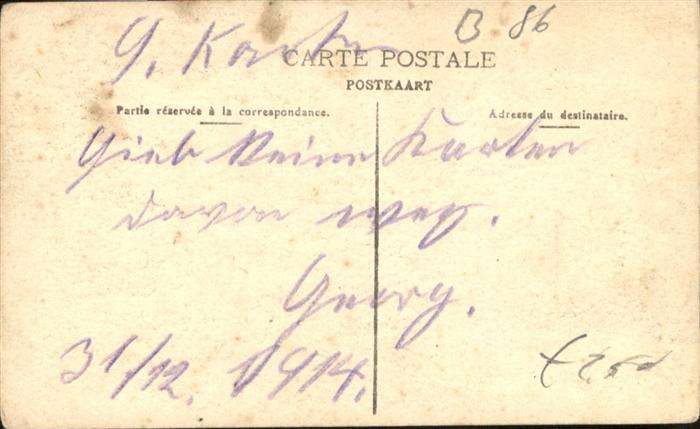 B 86
9. Karten
CARTE POSTALE
POSTKAART
Partie réservée à la correspondance.
Adresse du destinataire.
Gieb keine Karten
davon weg.
Georg.
31/12. 1914.